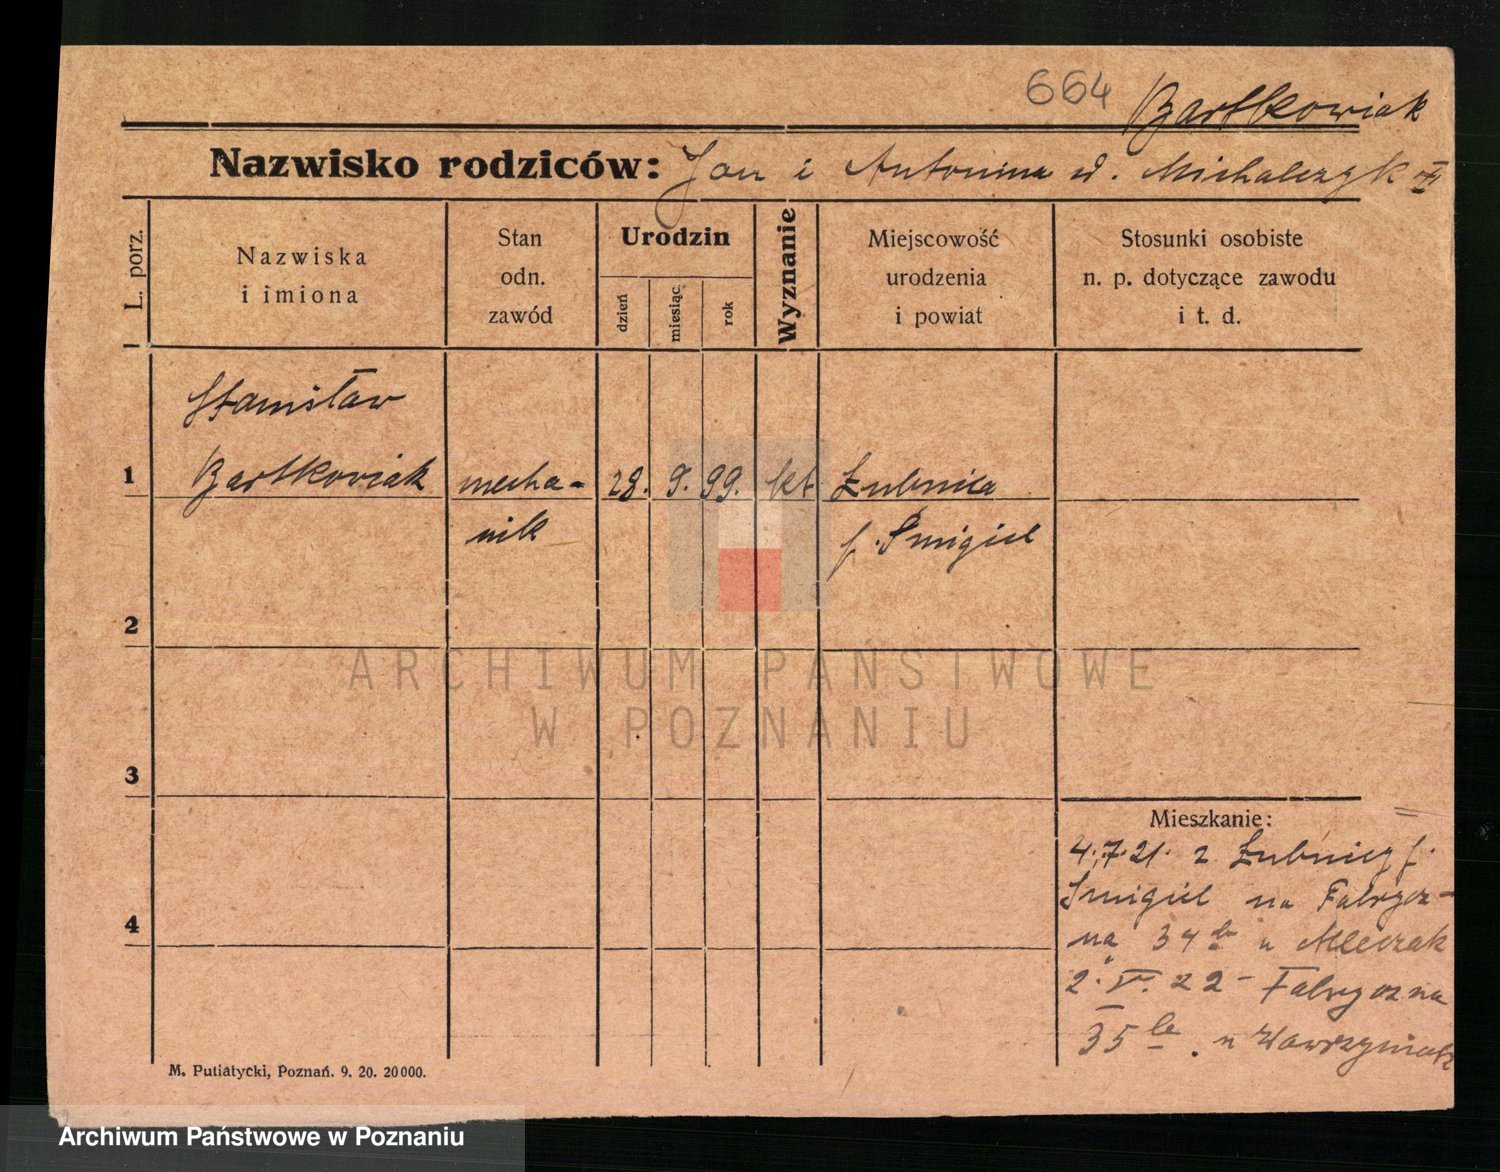 664 Bartkowiak
Nazwisko rodziców: Jan i Antonina d. Michalczyk
L. porz.
Nazwiska
i imiona
Stan
odn.
zawód
Urodzin
dzień
miesiąc
rok
Wyznanie
Miejscowość
urodzenia
i powiat
Stosunki osobiste
n. p. dotyczące zawodu
i t. d.
Stanisław
1 Bartkowiak mecha- 28. 9. 99. kt Żubnica
nik p. Śmigiel
2
3
4
ARCHIWUM PAŃSTWOWE
W POZNANIU
Mieszkanie:
4.7.21. z Żubnicy p.
Śmigiel na Fabrycz-
na 34 u Mleczak
2. V. 22 - Fabryczna
35 u Wawrzyniak
M. Putiatycki, Poznań. 9. 20. 20000.
Archiwum Państwowe w Poznaniu